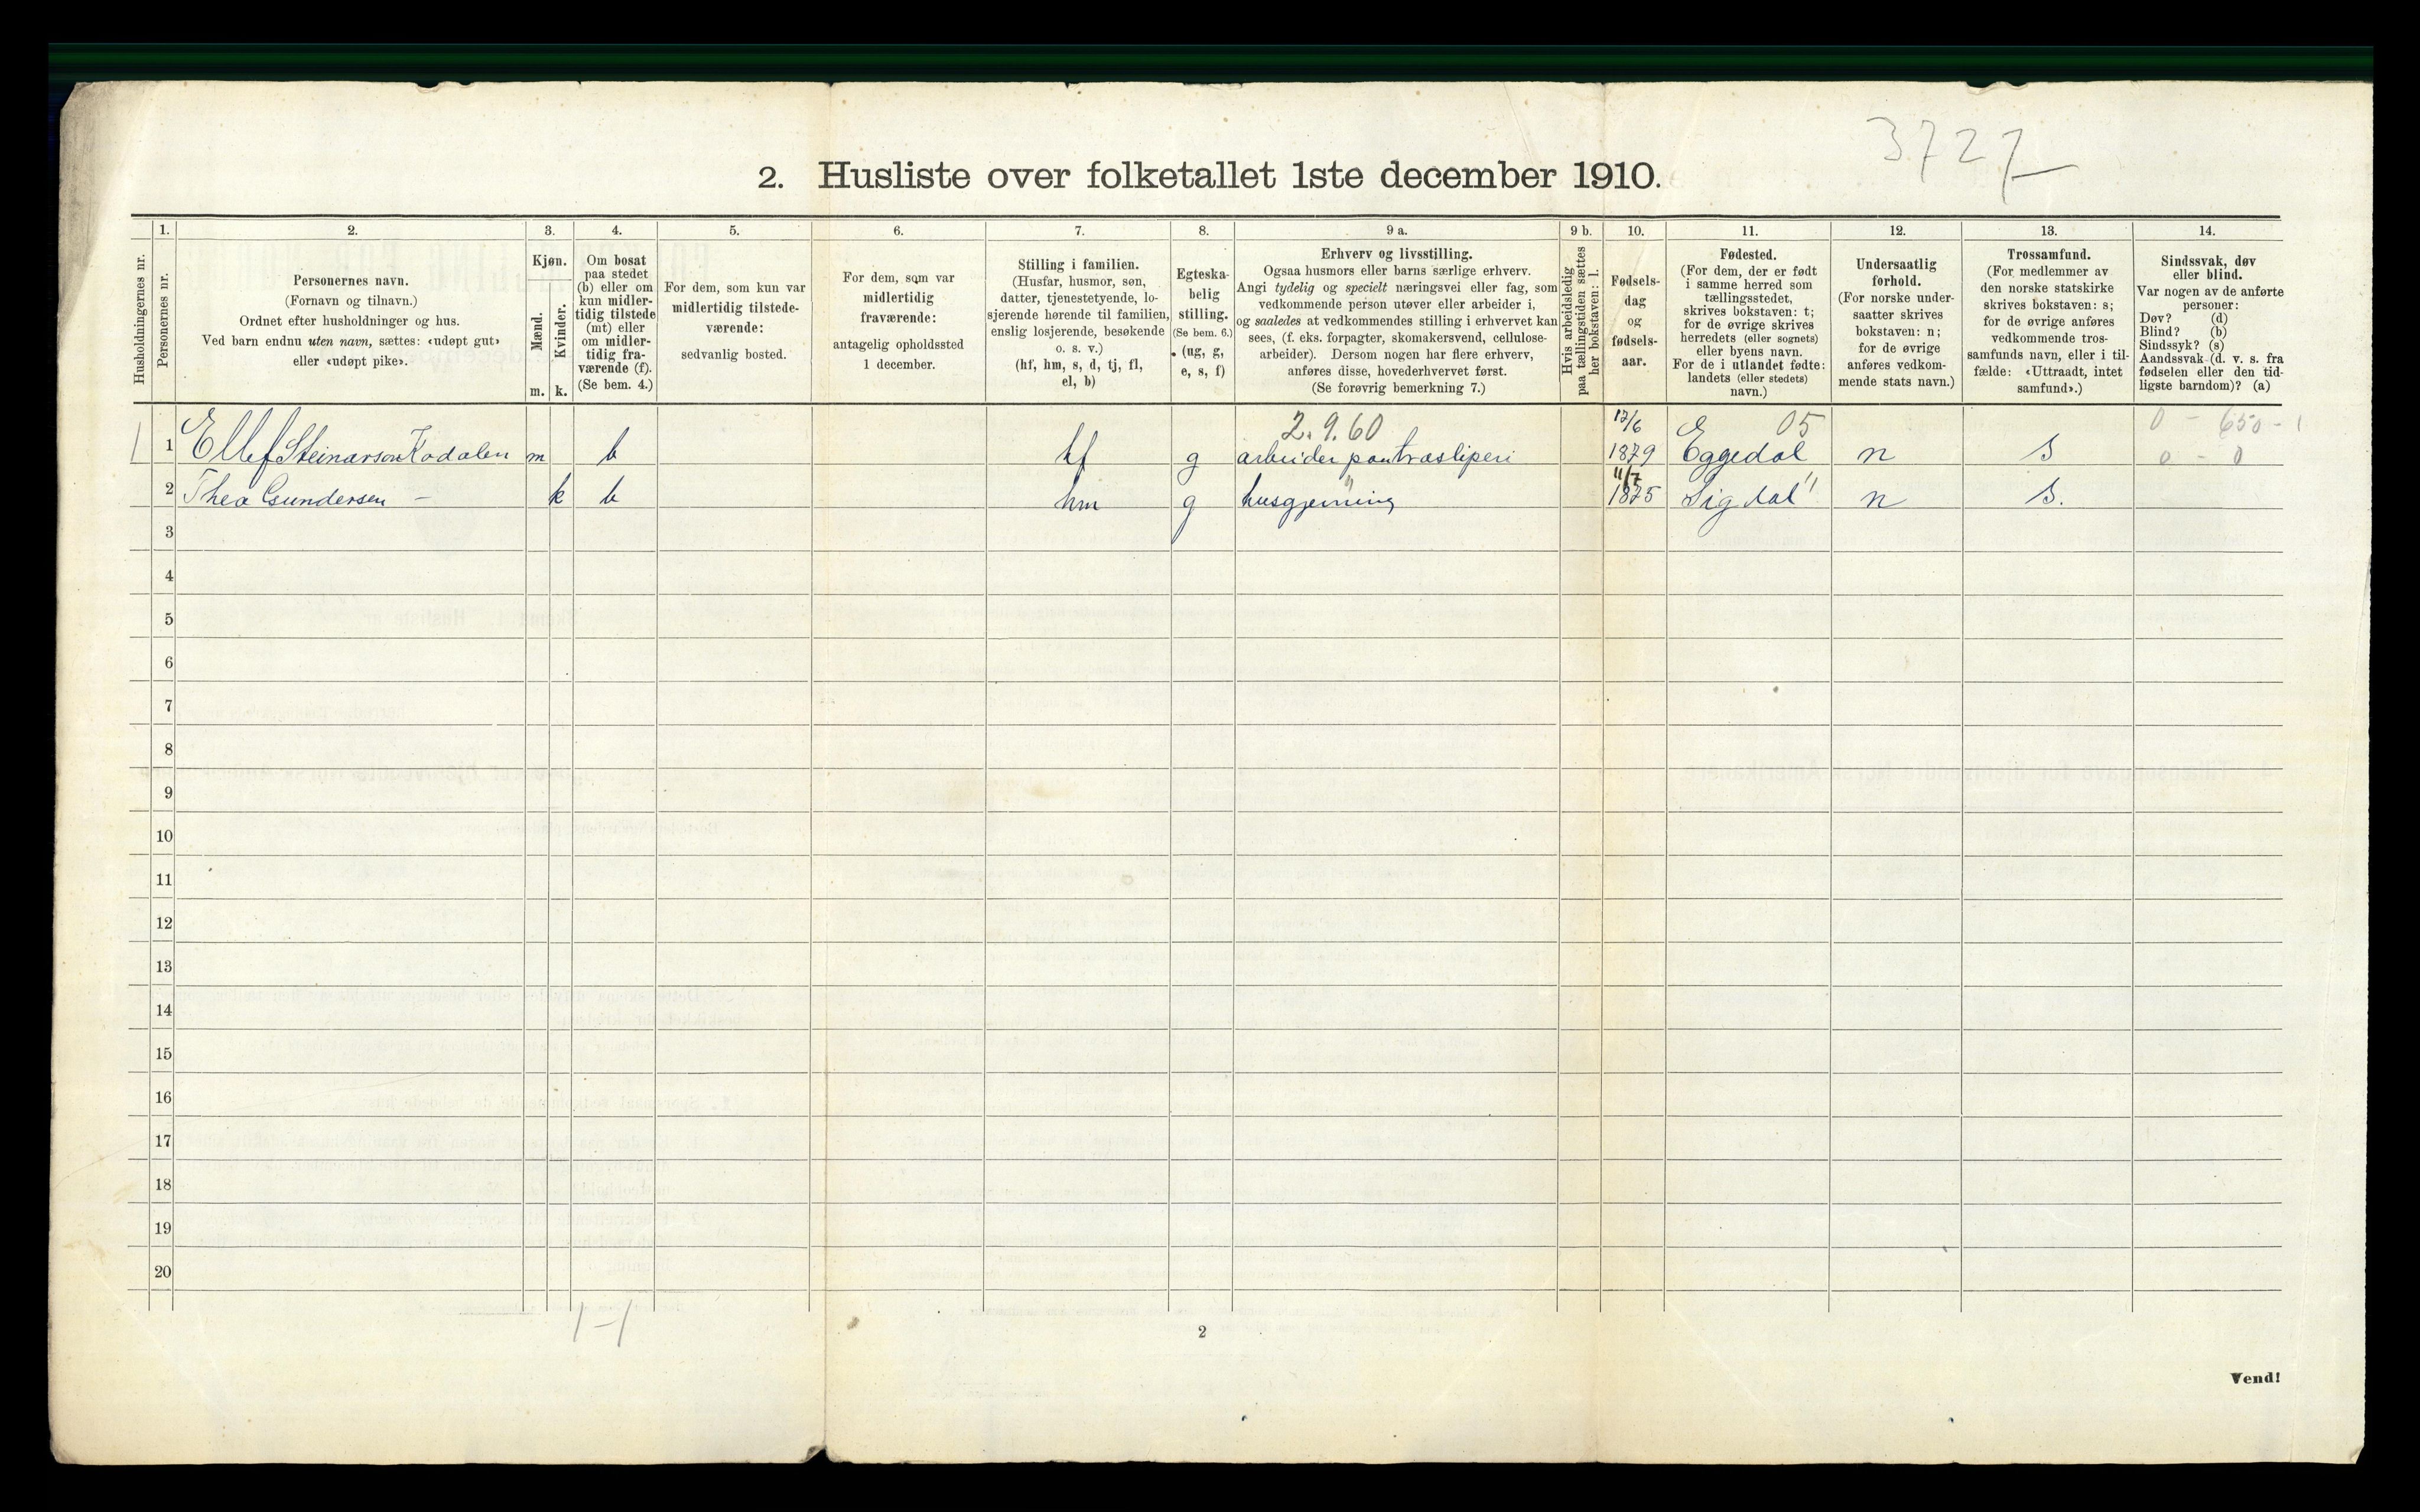 3727
2. Husliste over folketallet 1ste december 1910.
Husholdningernes nr.
1.
Personernes nr.
2.
Personernes navn.
(Fornavn og tilnavn.)
Ordnet efter husholdninger og hus.
Ved barn endnu uten navn, sættes: «udøpt gut»
eller «udøpt pike».
3.
Kjøn.
Mænd.
Kvinder.
m. k.
4.
Om bosat
paa stedet
(b) eller om
kun midler-
tidig tilstede
(mt) eller
om midler-
tidig fra-
værende (f).
(Se bem. 4.)
5.
For dem, som kun var
midlertidig tilstede-
værende:
sedvanlig bosted.
6.
For dem, som var
midlertidig
fraværende:
antagelig opholdssted
1 december.
7.
Stilling i familien.
(Husfar, husmor, søn,
datter, tjenestetyende, lo-
sjerende hørende til familien,
enslig losjerende, besøkende
o. s. v.)
(hf, hm, s, d, tj, fl,
el, b)
8.
Egteska-
belig
stilling.
(Se bem. 6.)
(ug, g,
e, s, f)
9 a.
Erhverv og livsstilling.
Ogsaa husmors eller barns særlige erhverv.
Angi tydelig og specielt næringsvei eller fag, som
vedkommende person utøver eller arbeider i,
og saaledes at vedkommendes stilling i erhvervet kan
sees, (f. eks. forpagter, skomakersvend, cellulose-
arbeider). Dersom nogen har flere erhverv,
anføres disse, hovederhvervet først.
(Se forøvrig bemerkning 7.)
9 b.
Hvis arbeidsledig
paa tællingstiden sættes
her bokstaven: l.
10.
Fødsels-
dag
og
fødsels-
aar.
11.
Fødested.
(For dem, der er født
i samme herred som
tællingsstedet,
skrives bokstaven: t;
for de øvrige skrives
herredets (eller sognets)
eller byens navn.
For de i utlandet fødte:
landets (eller stedets)
navn.)
12.
Undersaatlig
forhold.
(For norske under-
saatter skrives
bokstaven: n;
for de øvrige
anføres vedkom-
mende stats navn.)
13.
Trossamfund.
(For medlemmer av
den norske statskirke
skrives bokstaven: s;
for de øvrige anføres
vedkommende tros-
samfunds navn, eller i til-
fælde: «Uttraadt, intet
samfund».)
14.
Sindssvak, døv
eller blind.
Var nogen av de anførte
personer:
Døv? (d)
Blind? (b)
Sindssyk? (s)
Aandssvak (d. v. s. fra
fødselen eller den tid-
ligste barndom)? (a)
2.9.60 12/6 05 0 - 650 - 1
1 1 Ellef Steinarson Kadalen m b hf g arbeider paa træsliperi 1879 Eggedal n S 0 - 0
11/7
2 Thea Gundersen - k b hm g husgjerning 1875 Sigdal " n S.
3
4
5
6
7
8
9
10
11
12
13
14
15
16
17
18
19
20
1-1
2
Vend!